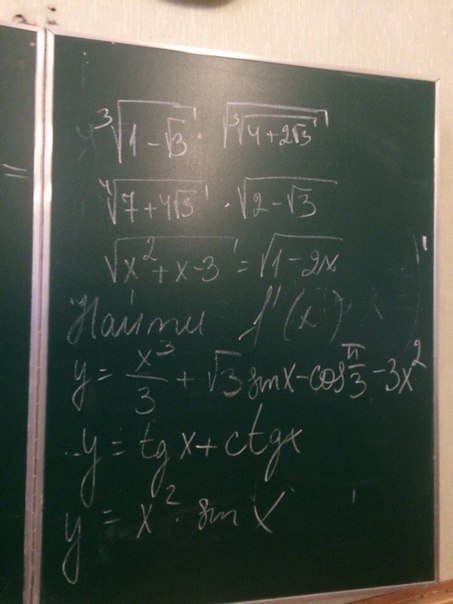 ∛(1-√3) · √(∛(4+2√3))
∜(7+4√3) · √(2-√3)
√(x²+x-3) = √(1-2x)
Найти f'(x)
y = x³/3 + √3 sin x - cos π/3 - 3x²
y = tg x + ctg x
y = x² · sin x